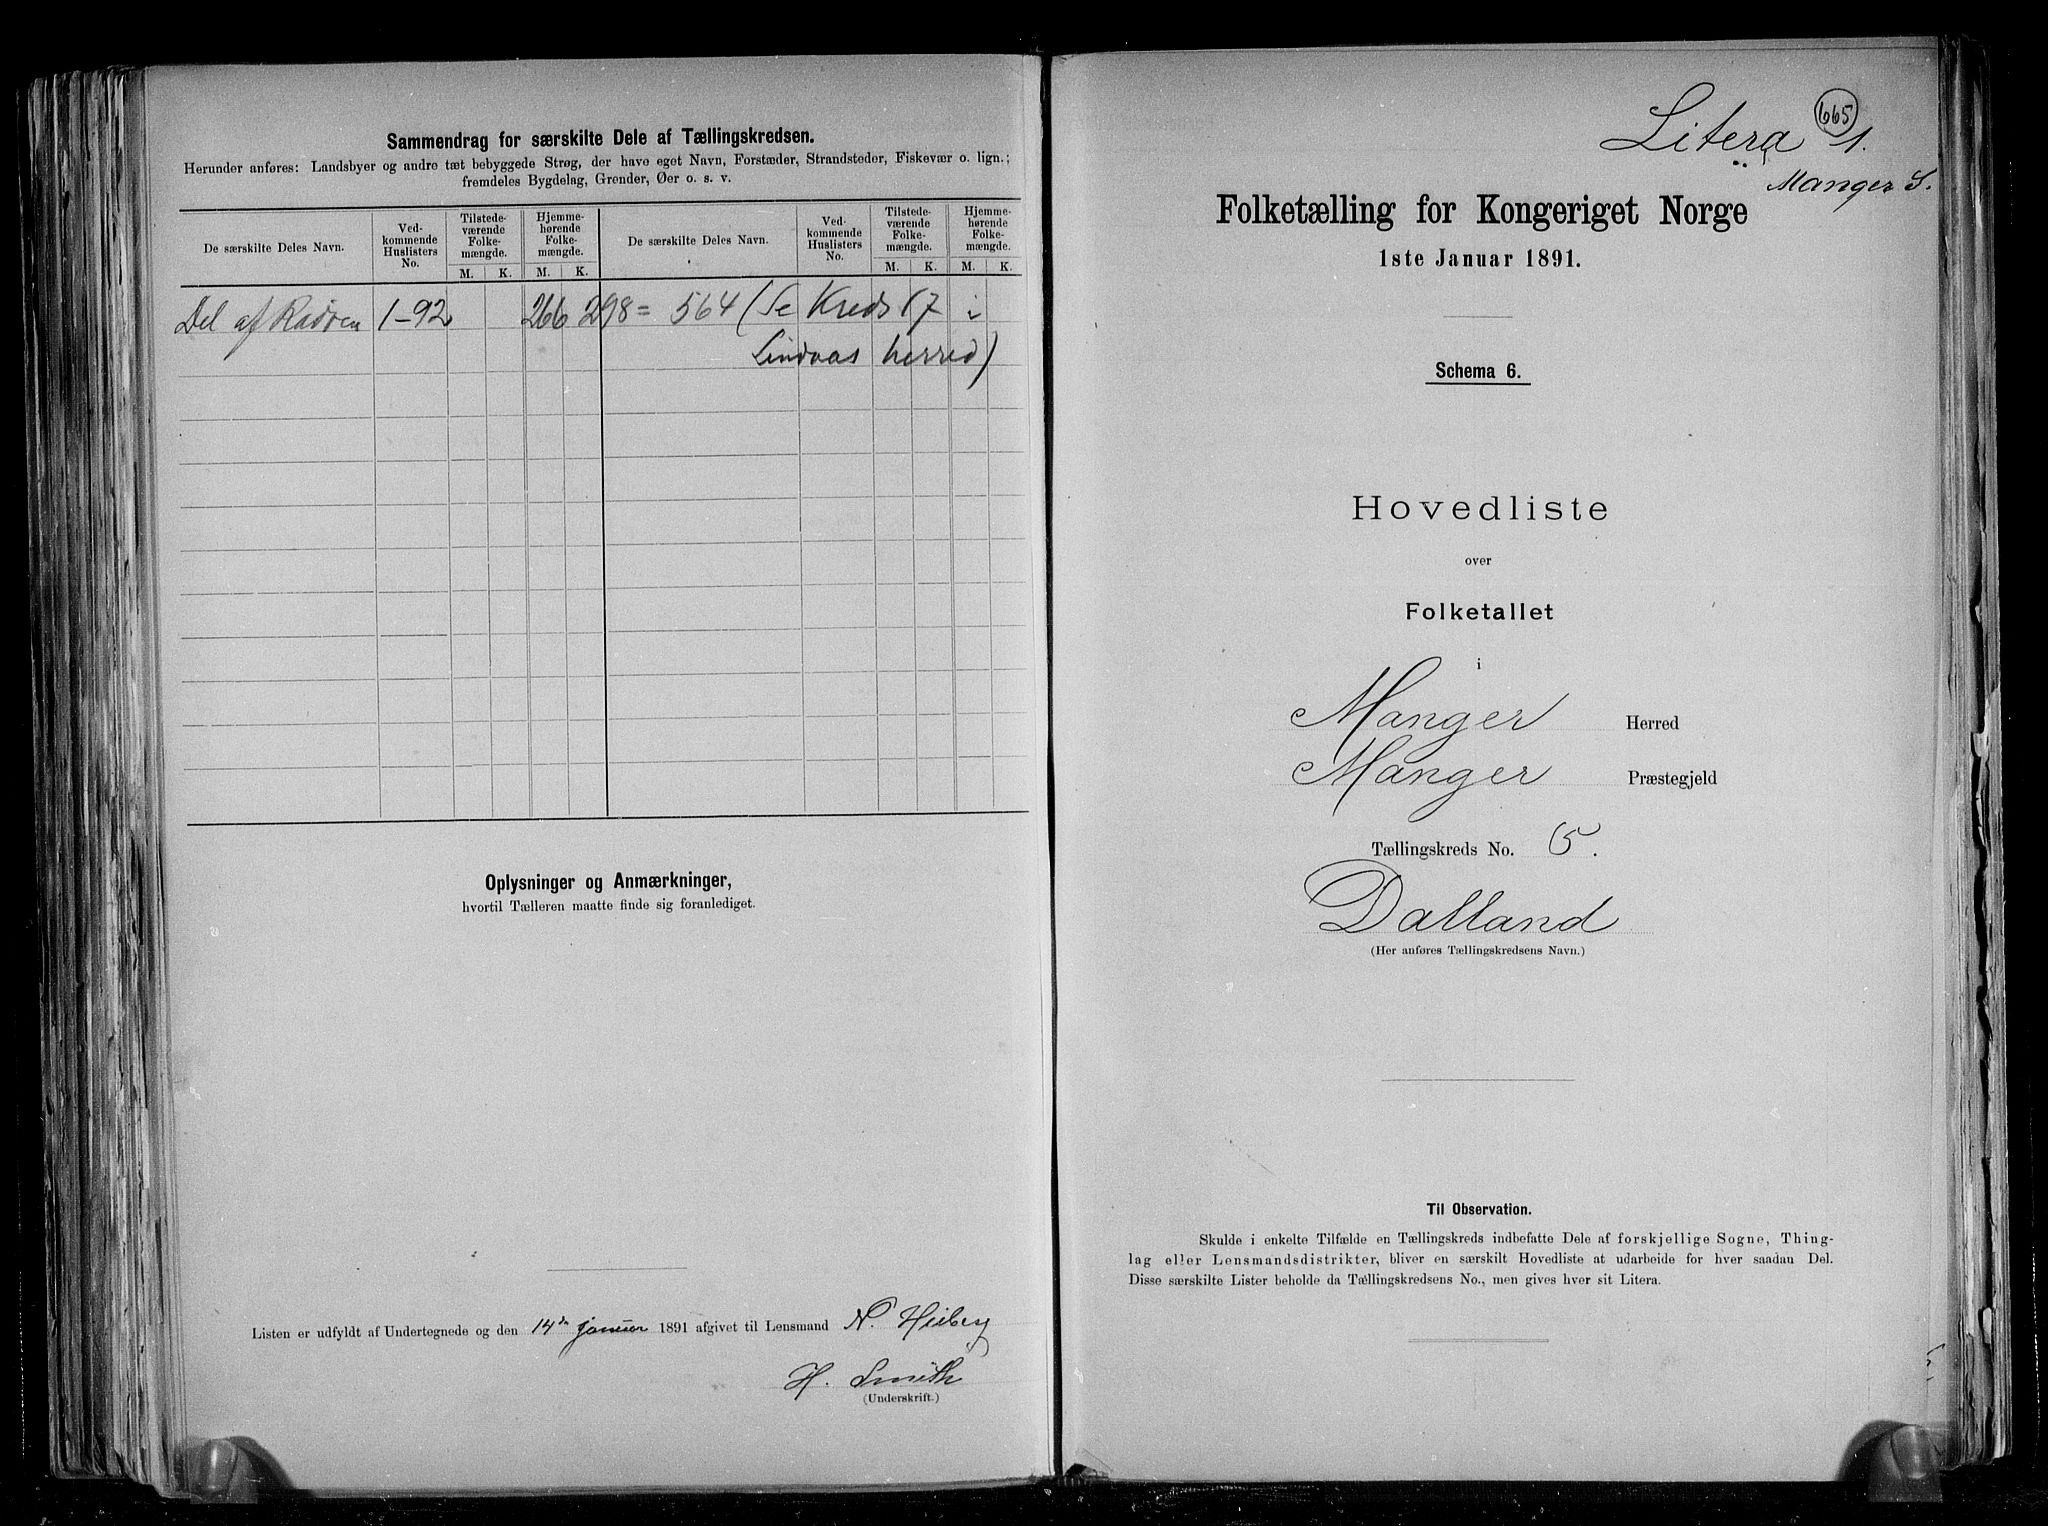 Sammendrag for særskilte Dele af Tællingskredsen.
Herunder anføres: Landsbyer og andre tæt bebyggede Strøg, der have eget Navn, Forstæder, Strandsteder, Fiskevær o. lign.;
fremdeles Bygdelag, Grender, Øer o. s. v.
De særskilte Deles Navn. Ved-kommende Huslisters No. Tilstede-værende Folke-mængde. Hjemme-hørende Folke-mængde. De særskilte Deles Navn. Ved-kommende Huslisters No. Tilstede-værende Folke-mængde. Hjemme-hørende Folke-mængde.
M. K. M. K. M. K. M. K.
Del af Radøen 1-92 266 298 = 564 (Se Kreds 17 i
Lindaas herred)
Oplysninger og Anmærkninger,
hvortil Tælleren maatte finde sig foranlediget.
Listen er udfyldt af Undertegnede og den 14de januar 1891 afgivet til Lensmand N. Heiberg
H. Smith
(Underskrift.)
665
Litera 1.
Manger S.
Folketælling for Kongeriget Norge
1ste Januar 1891.
Schema 6.
Hovedliste
over
Folketallet
i
Manger Herred
Manger Præstegjeld
Tællingskreds No. 5.
Dalland
(Her anføres Tællingskredsens Navn.)
Til Observation.
Skulde i enkelte Tilfælde en Tællingskreds indbefatte Dele af forskjellige Sogne, Thing-
lag eller Lensmandsdistrikter, bliver en særskilt Hovedliste at udarbeide for hver saadan Del.
Disse særskilte Lister beholde da Tællingskredsens No., men gives hver sit Litera.